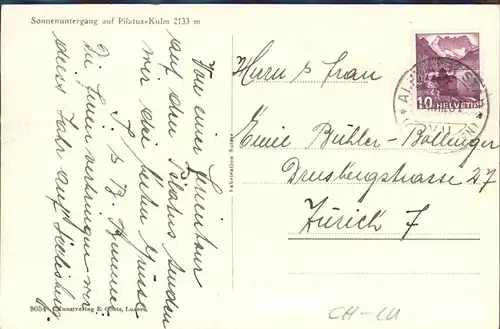 Sonnenuntergang auf Pilatus-Kulm 2133 m
Von einer Ferientour
auf den Pilatus senden
wir die besten Grüsse
F. & B. Brunner
Die Ferien verbringen wir
dieses Jahr auf Seelisberg
Herrn & Frau
Emil Bühler-Bollinger
Dreibergstrasse 27
Zürich 7
10 HELVETIA
Fabrication Suisse
9054 Kunstverlag E. Goetz, Luzern.
CH-LU